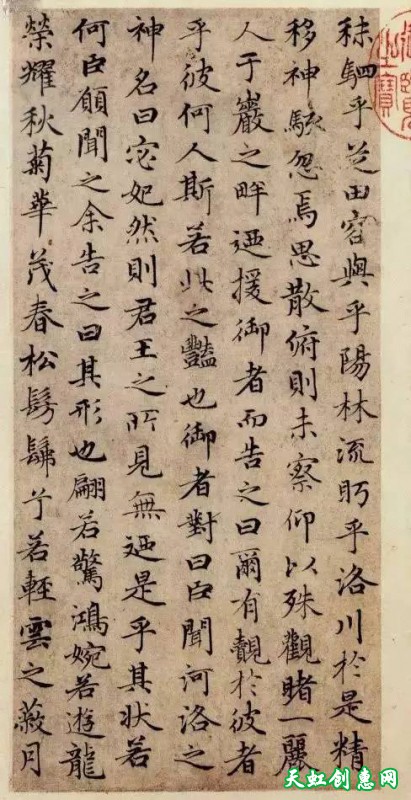 秣駟乎芝田容與乎陽林流眄乎洛川於是精
移神駭忽焉思散俯則未察仰以殊觀睹一麗
人于巖之畔迺援御者而告之曰爾有覿於彼者
乎彼何人斯若此之豔也御者對曰臣聞河洛之
神名曰宓妃然則君王之所見無迺是乎其狀若
何臣願聞之余告之曰其形也翩若驚鴻婉若遊龍
榮耀秋菊華茂春松髣髴兮若輕雲之蔽月
之寶
天虹创惠网